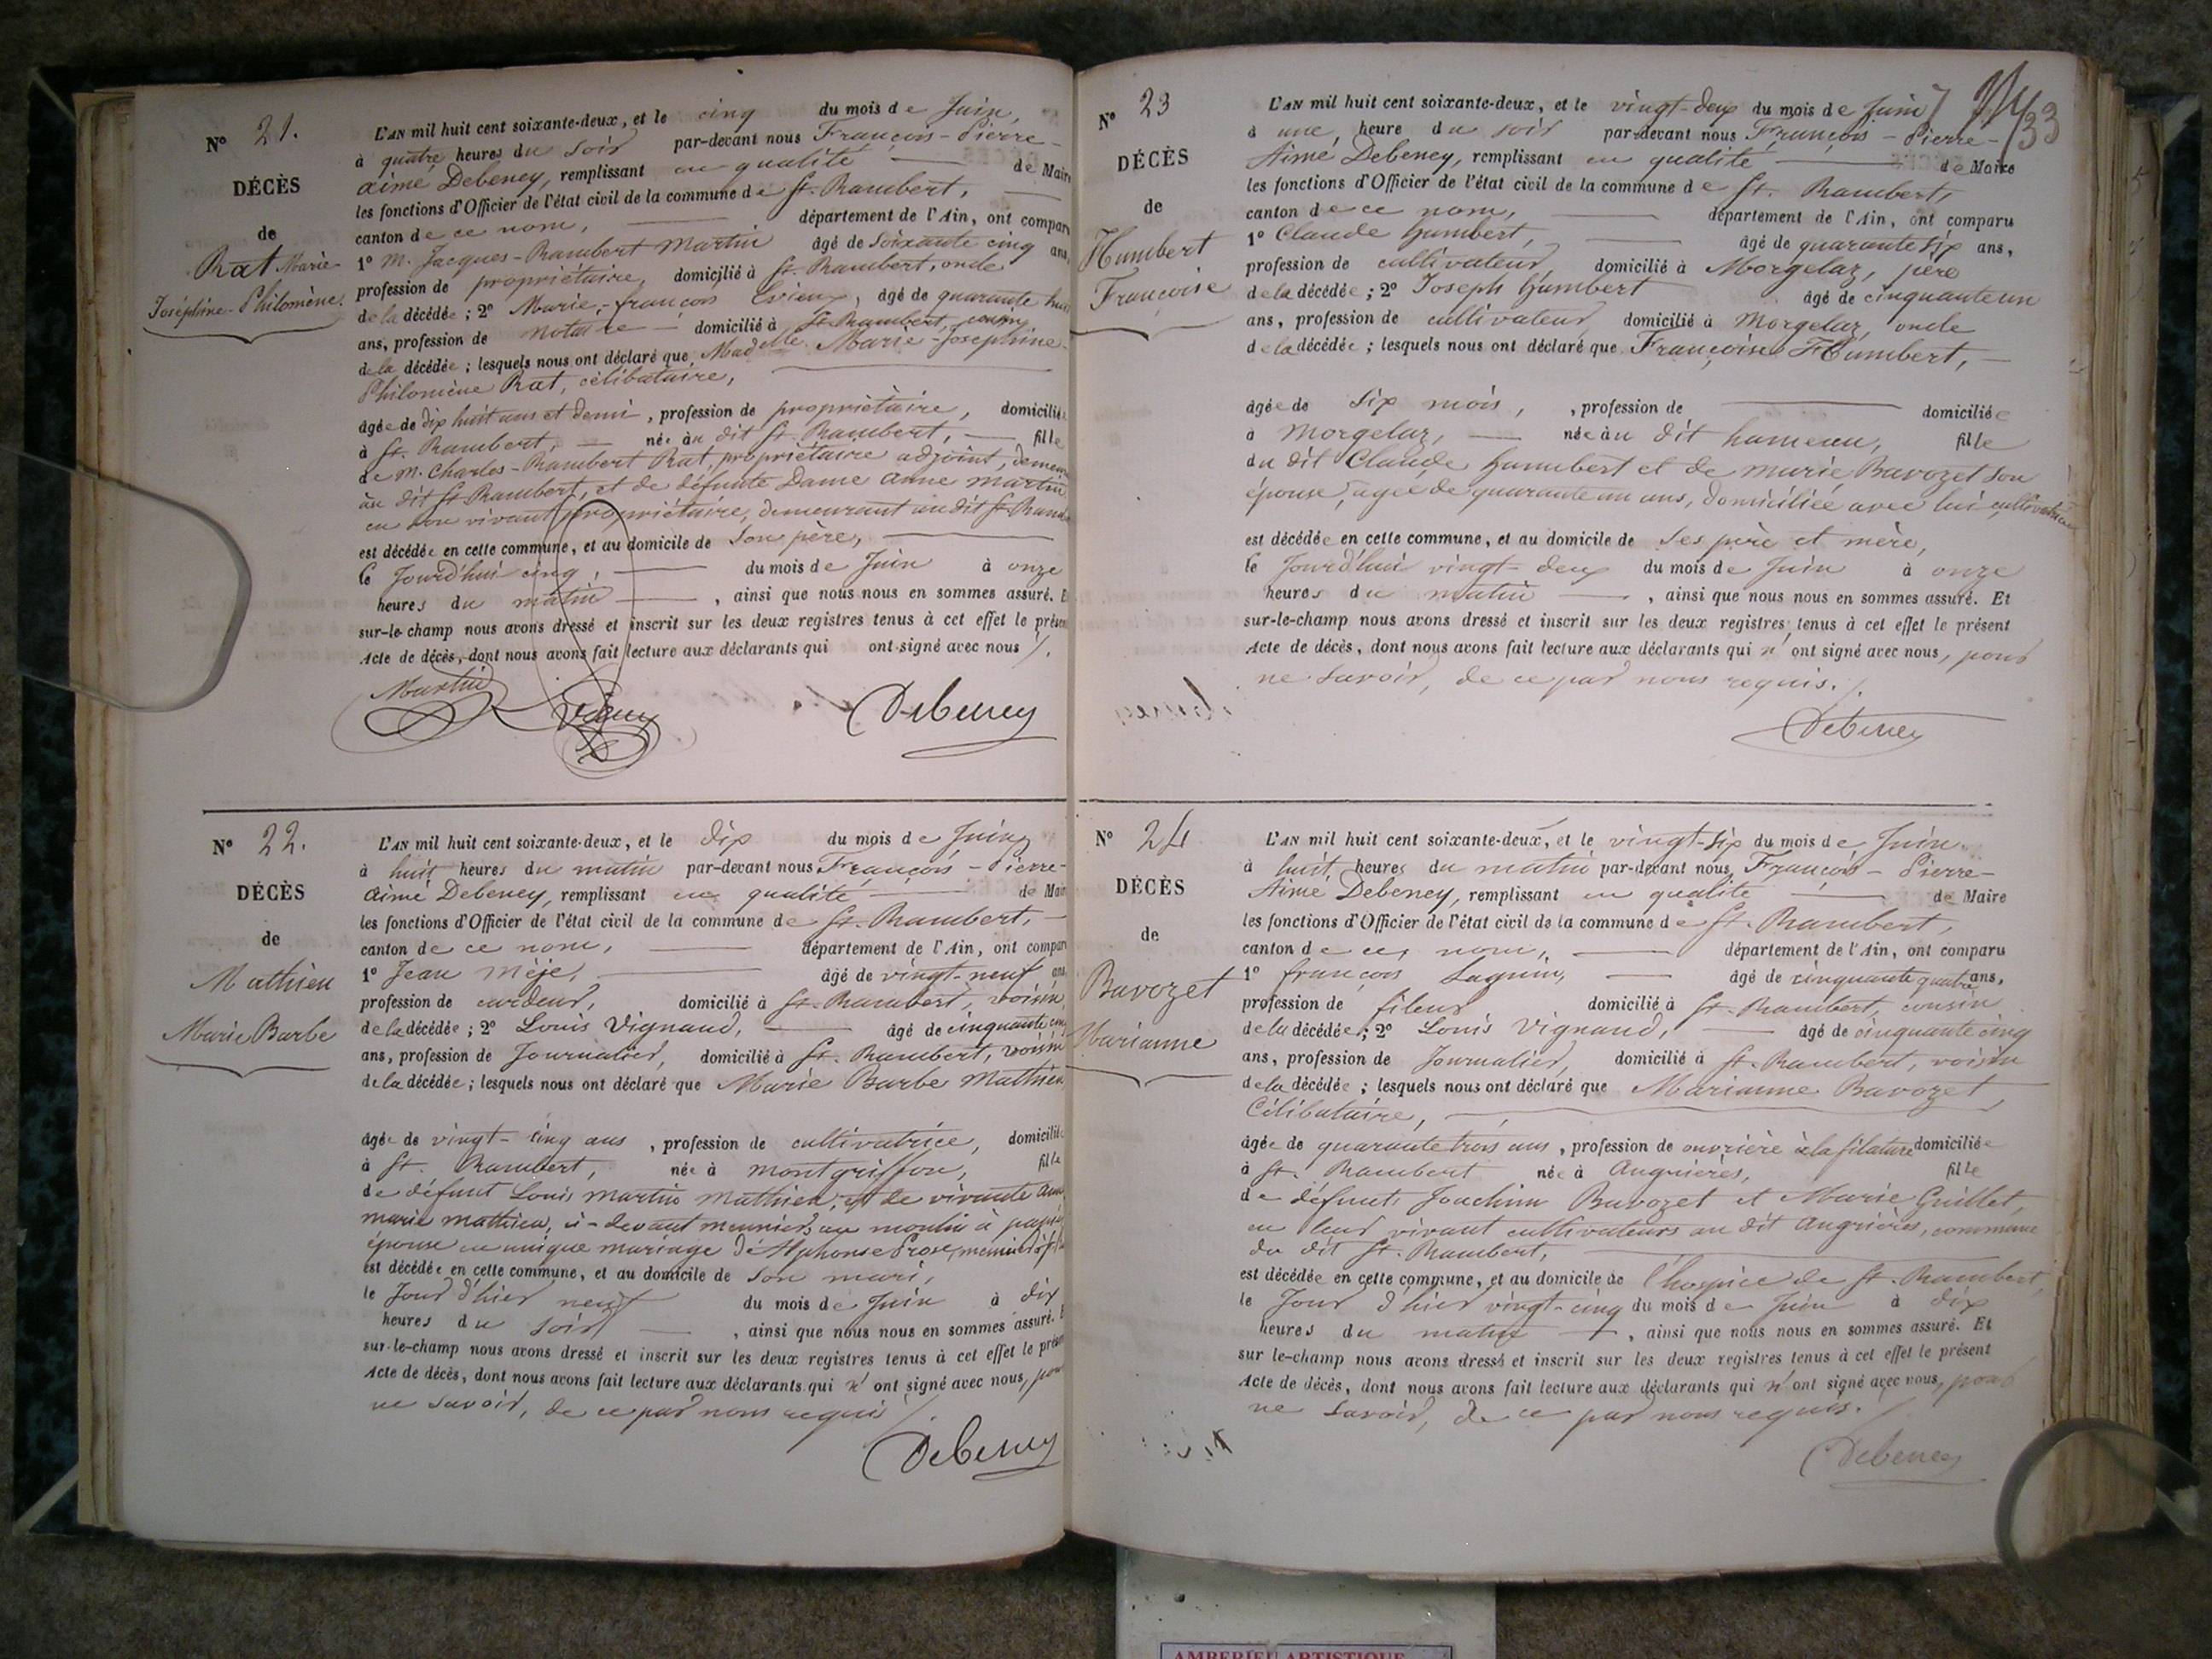 N° 21.
DÉCÈS
de
Rat Marie
Joséphine-Philomène.
L'AN mil huit cent soixante-deux, et le cinq du mois de Juin,
à quatre heures du soir par-devant nous François-Pierre-
aimé Debeney, remplissant en qualité de Maire
les fonctions d'Officier de l'état civil de la commune de St. Rambert,
canton de ce nom, département de l'Ain, ont comparu
1° M. Jacques-Rambert Martin âgé de soixante cinq ans,
profession de propriétaire, domicilié à St. Rambert, oncle
de la décédée ; 2° Marie-françois âgé de quarante huit
ans, profession de notaire domicilié à St. Rambert, cousin
de la décédée ; lesquels nous ont déclaré que Madelle Marie-Joséphine-
Philomène Rat, célibataire,
âgée de dix huit ans et demi, profession de propriétaire, domiciliée
à St. Rambert, née au dit St. Rambert, fille
de M. Charles-Rambert Rat, propriétaire adjoint,
au dit St Rambert, et de défunte Dame Anne Martin
en son vivant propriétaire, demeurant au dit St.
est décédée en cette commune, et au domicile de son père,
le Jourd'hui cinq, du mois de Juin à onze
heures du matin, ainsi que nous nous en sommes assuré. E
sur-le-champ nous avons dressé et inscrit sur les deux registres tenus à cet effet le présen
Acte de décès, dont nous avons fait lecture aux déclarants qui ont signé avec nous /.
Martin Debeney
N° 22.
DÉCÈS
de
Mathieu
Marie Barbe
L'AN mil huit cent soixante-deux, et le dix du mois de Juin
à huit heures du matin par-devant nous François-Pierre-
aimé Debeney, remplissant en qualité de Mair
les fonctions d'Officier de l'état civil de la commune de St. Rambert,
canton de ce nom, département de l'Ain, ont compar
1° Jean Mèje, âgé de vingt-neuf ans,
profession de cardeur, domicilié à St. Rambert, voisin
de la décédée ; 2° Louis Vignaud, âgé de cinquante cinq
ans, profession de Journalier, domicilié à St. Rambert, voisin
de la décédée ; lesquels nous ont déclaré que Marie Barbe Mathieu
âgée de vingt-cinq ans, profession de cultivatrice, domiciliée
à St. Rambert, née à montgriffon, fille
de défunt Louis martin mathieu, et de vivante
marie mathieu, ci-devant meuniers au moulin à papier
épouse en unique mariage d'Alphonse Prost,
est décédée en cette commune, et au domicile de son mari,
le Jour d'hier neuf du mois de Juin à dix
heures du soir, ainsi que nous nous en sommes assuré. E
sur-le-champ nous avons dressé et inscrit sur les deux registres tenus à cet effet le présen
Acte de décès, dont nous avons fait lecture aux déclarants qui n'ont signé avec nous, pour
ne savoir, de ce par nous requis /.
Debeney
33
N° 23
DÉCÈS
de
Humbert
Françoise
L'AN mil huit cent soixante-deux, et le vingt-deux du mois de Juin
à une heure du soir par-devant nous François-Pierre-
Aimé Debeney, remplissant en qualité de Maire
les fonctions d'Officier de l'état civil de la commune de St. Rambert,
canton de ce nom, département de l'Ain, ont comparu
1° Claude humbert, âgé de quarante six ans,
profession de cultivateur, domicilié à Morgelaz, père
de la décédée ; 2° Joseph humbert âgé de cinquante un
ans, profession de cultivateur, domicilié à Morgelaz, oncle
de la décédée ; lesquels nous ont déclaré que Françoise Humbert,
âgée de six mois, , profession de domiciliée
à Morgelaz, née au dit hameau, fille
du dit Claude humbert et de marie Bavozet son
épouse, agée de quarante un ans, domiciliée avec lui cultivatrice
est décédée en cette commune, et au domicile de ses père et mère,
le Jourd'hui vingt-deux du mois de Juin à onze
heures du matin, ainsi que nous nous en sommes assuré. Et
sur-le-champ nous avons dressé et inscrit sur les deux registres tenus à cet effet le présent
Acte de décès, dont nous avons fait lecture aux déclarants qui n'ont signé avec nous, pour
ne savoir, de ce par nous requis. /.
Debeney
N° 24
DÉCÈS
de
Bavozet
Marianne
L'AN mil huit cent soixante-deux, et le vingt-six du mois de Juin.
à huit heures du matin par-devant nous, François-Pierre-
Aimé Debeney, remplissant en qualité de Maire
les fonctions d'Officier de l'état civil de la commune de St. Rambert,
canton de ce nom, département de l'Ain, ont comparu
1° françois âgé de cinquante quatre ans,
profession de fileur domicilié à St. Rambert, cousin
de la décédée ; 2° Louis Vignaud, âgé de cinquante cinq
ans, profession de Journalier, domicilié à St. Rambert, voisin
de la décédée ; lesquels nous ont déclaré que Marianne Bavozet
Célibataire,
âgée de quarante trois ans, profession de ouvrière à la filature domiciliée
à St. Rambert née à Angrières, fille
de défunts Joachim Bavozet et Marie Guillet,
en leur vivant cultivateurs au dit Angrières, commune
du dit St. Rambert,
est décédée en cette commune, et au domicile de l'hospice de St. Rambert,
le Jour d'hier vingt-cinq du mois de Juin à dix
heures du matin, ainsi que nous nous en sommes assuré. Et
sur le-champ nous avons dressé et inscrit sur les deux registres tenus à cet effet le présent
Acte de décès, dont nous avons fait lecture aux déclarants qui n'ont signé avec nous, pour
ne savoir, de ce par nous requis. /
Debeney
AMBERIEU ARTISTIQUE